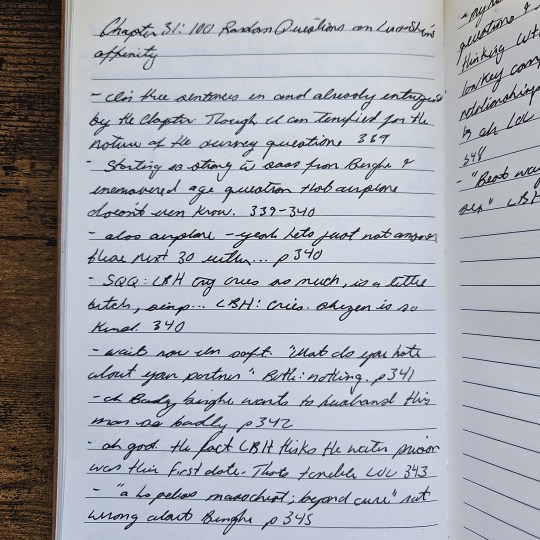 Chapter 31: 100 Random Questions on Luo-Shen's
affinity
- I'm three sentences in and already intrigued
by the Chapter Though I am terrified for the
nature of the survey questions 339
- Starting so strong w sass from Binghe &
unanswered age question that airplane
doesn't even know. 339-340
- also airplane - yeah lets just not answer
these next 30 either... p 340
- SQQ: LBH cries so much, is a little
bitch, simp... LBH: cries. shizun is so
kind. 340
- wait now I'm soft. "What do you hate
about your partner" Both: nothing. p 341
- oh Baby binghe wants to husband this
man so badly p 342
- oh god the fact LBH thinks the water prison
was their first date. Thats terrible LOL 343
- "a hopeless masochist; beyond cure" not
wrong about Binghe p 345
questions &
thinking
lowkey
relationships
oh LOL
348
- "Best way
LBH